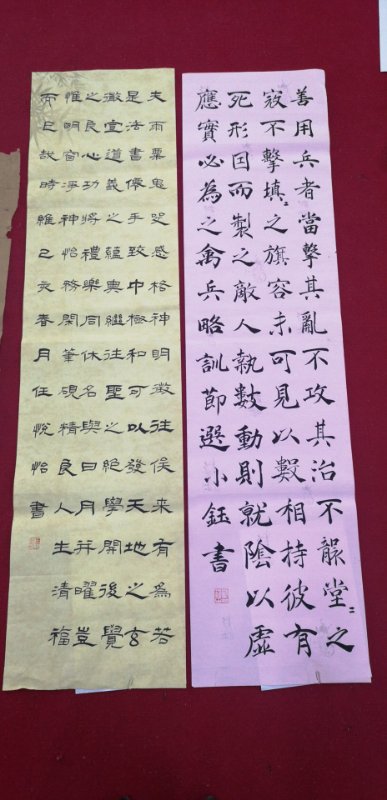 善用兵者當擊其亂不攻其治不襲堂〻之
寇不擊填〻之旗容未可見以數相持彼有
死形因而製之敵人執數動則就陰以虛
應實必為之禽兵略訓節選小鈺書
夫雨粟鬼哭感格神明徵往俟來有為若
是法書儒手致中極和可以發天地之玄
徹宣道義之蘊奧繼往聖之絕學開後覺
之良心功將禮樂同休名與日月并曜豈
惟明窗淨神怡務閑筆硯精良人生清福
而已哉時維己亥春月任悅怡書